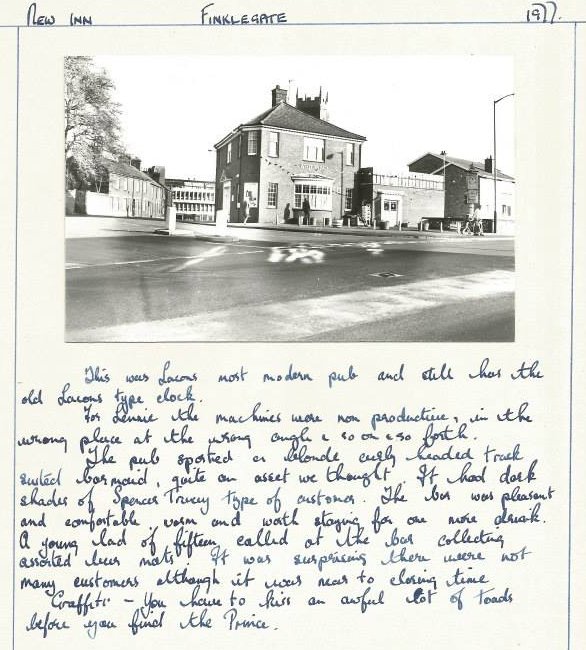 NEW INN FINKLEGATE 1977.
This was Lacons most modern pub and still has the
old Lacons type clock.
For Lennie the machines were non productive, in the
wrong place at the wrong angle & so on & so forth.
The pub sported a blonde curly headed track
suited barmaid, quite an asset we thought. It had dark
shades of Spencer Tracey type of customer. The bar was pleasant
and comfortable, warm and worth staying for one more drink.
A young lad of fifteen called at the bar collecting
assorted beer mats. It was surprising there were not
many customers although it was near to closing time
Graffiti - You have to kiss an awful lot of toads
before you find the Prince.